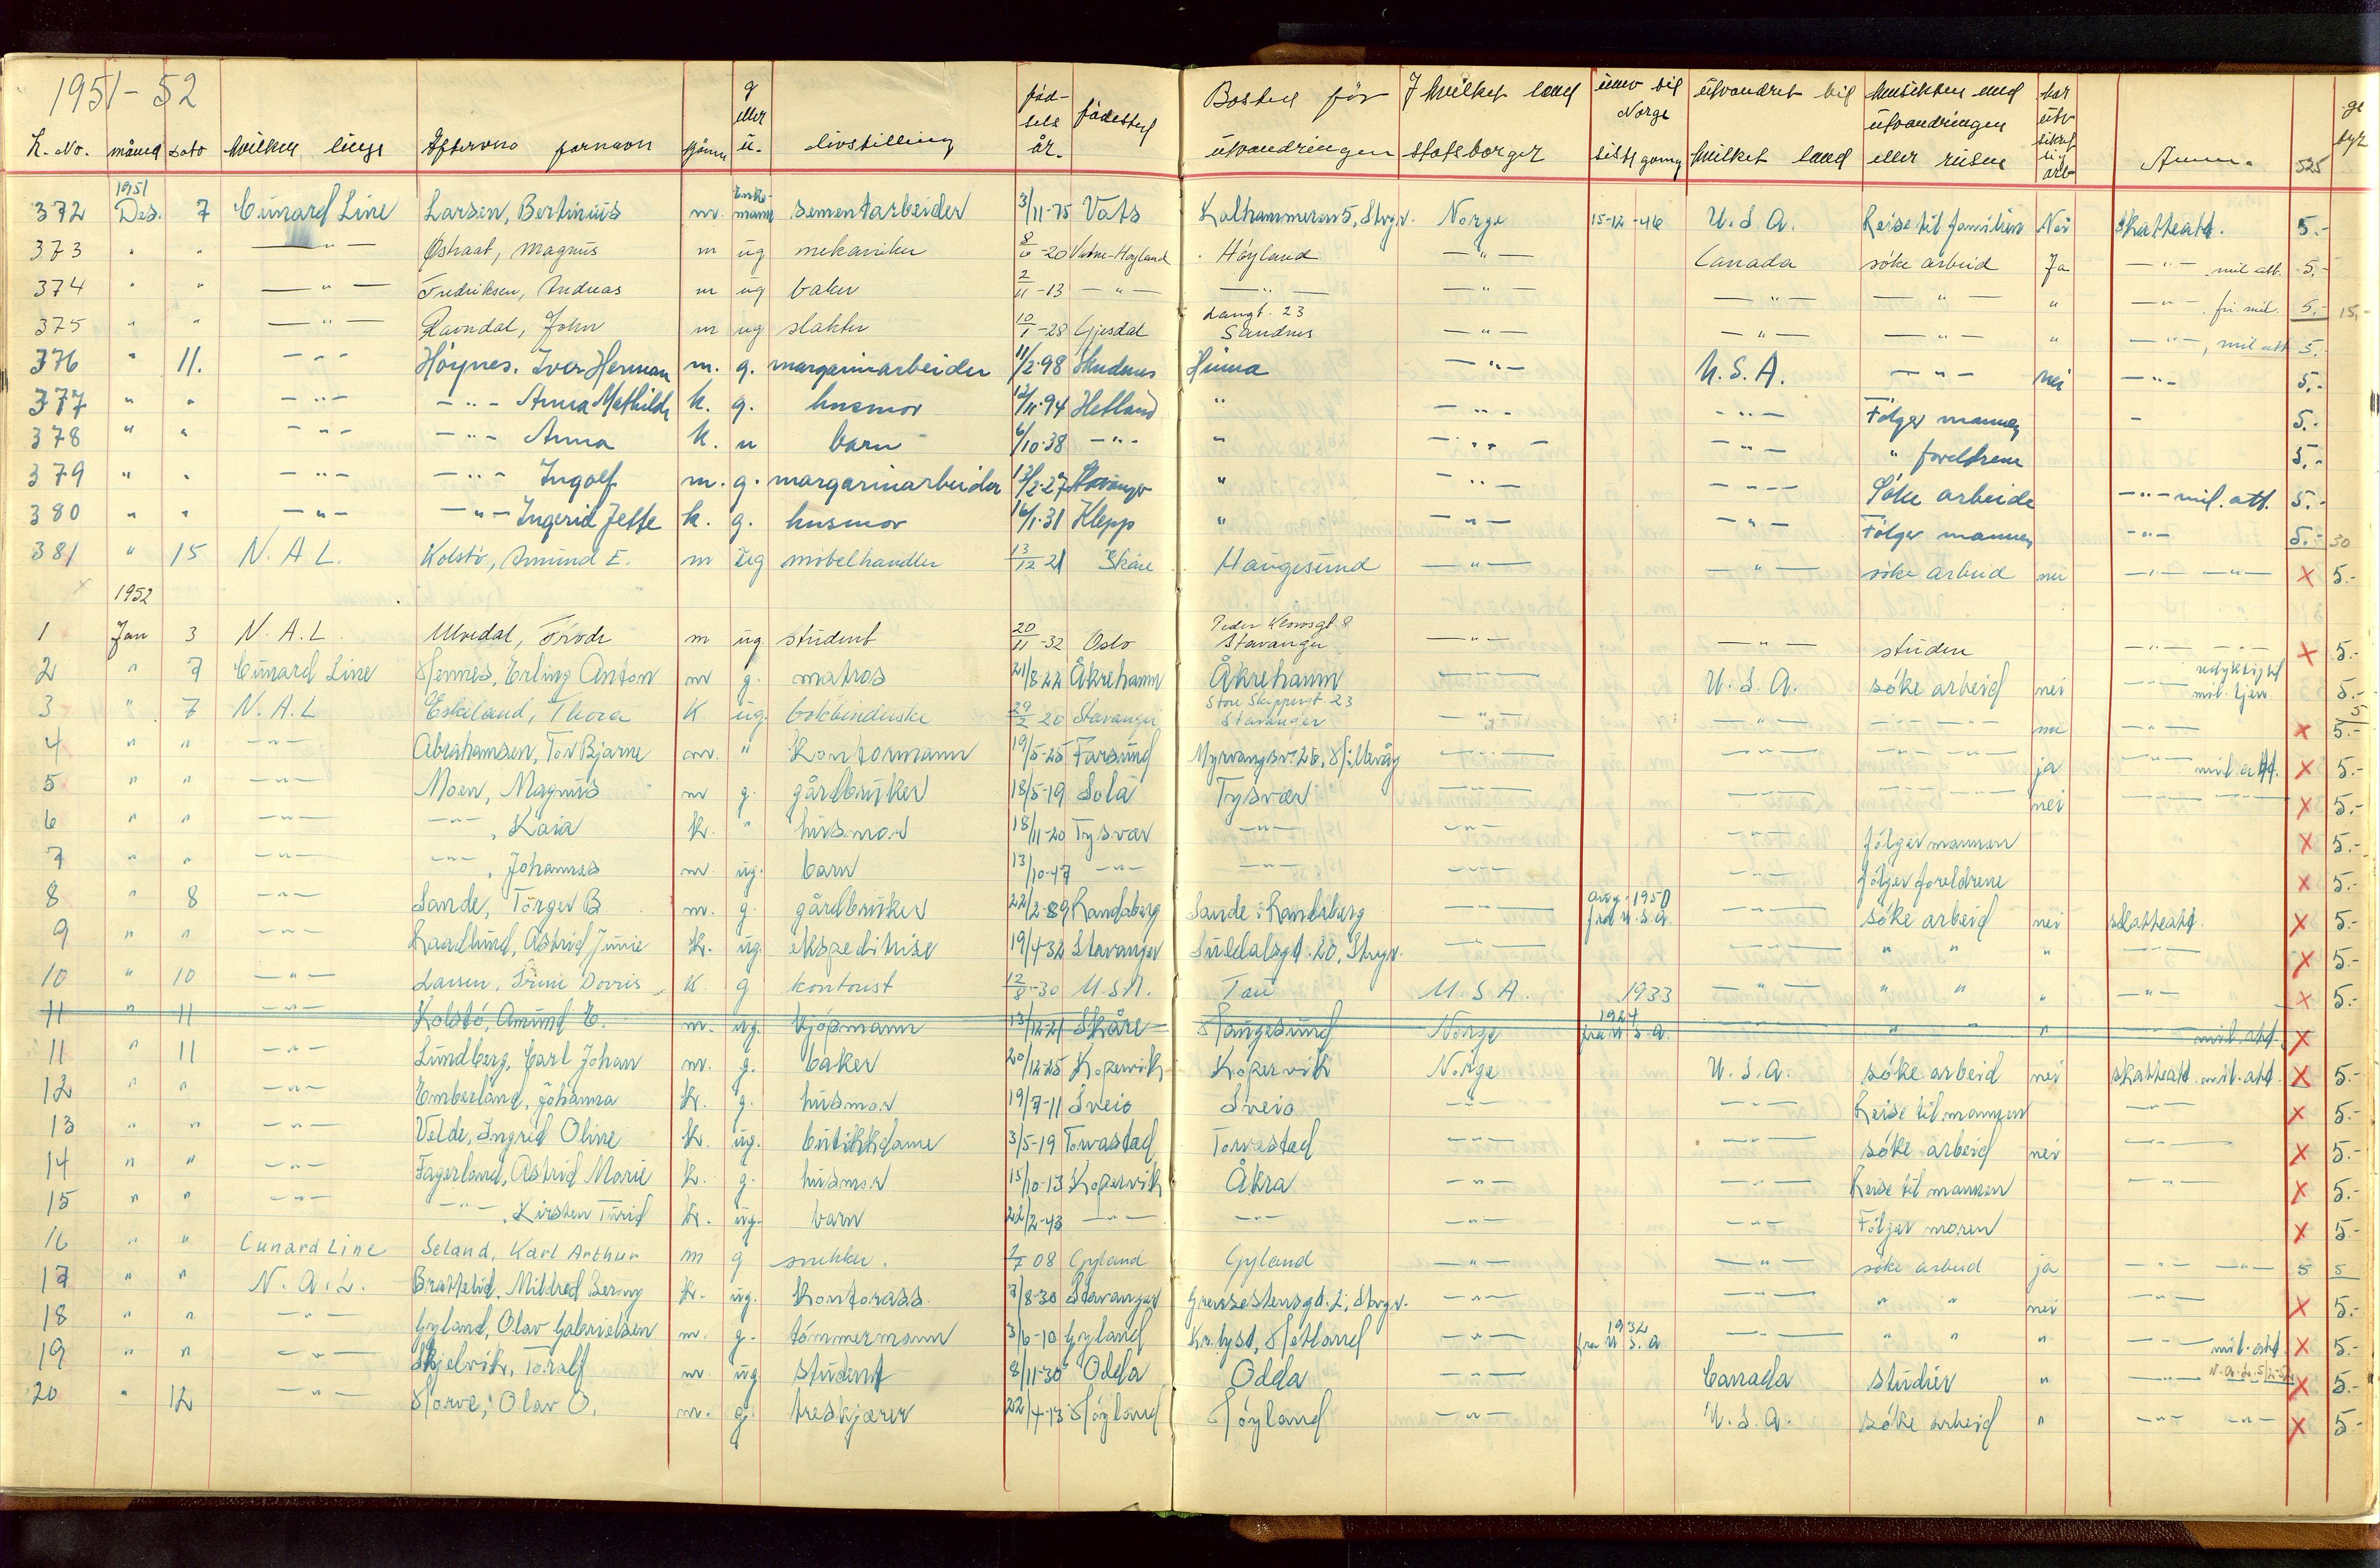 1951-52
L. No. måned dato hvilken linje Efternavn fornavn kjønn g eller u. livsstilling fødselsår. fødested Bosted før utvandringen I hvilket land statsborger innv til Norge siste gang utvandret til hvilket land hensikten med utvandringen eller reisen har utv sikret sig arb Anm. 525
1951
372 Des. 7 Cunard Line Larsen, Bertinius m. Enkemann sementarbeider 3/11-75 Vats Kalhammeren 5, Stvgr. Norge 15-12-46 U.S.A. Reise til familien Nei skatteatt. 5.-
373 " " —"— Østraat, Magnus m ug mekaniker 8/6-20 Vatne-Høyland Høyland —"— Canada søke arbeid Ja —"— mil att. 5.-
374 " " —"— Fredriksen, Andreas m ug baker 2/11-13 —"— —"— —"— —"— —"— " —"— fri. mil. 5.- 15.-
375 " " —"— Ravndal, John m ug slakter 10/1-28 Gjesdal Langt. 23 Sandnes —"— —"— —"— " —"—, mil att 5.-
376 " 11. —"— Høynes, Iver Herman m. g. margarinarbeider 11/2-98 Skudenes Hinna —"— U.S.A. —"— nei —"— 5.-
377 " " —"— —"— Anna Mathilde k. g. husmor 12/11-94 Hetland " —"— —"— Følger mannen - 5.-
378 " " —"— —"— Anna k. u barn 6/10-38 —"— " —"— —"— " foreldrene 5.-
379 " " —"— —"— Ingolf m. g. margarinarbeider 13/2-27 Stavanger " —"— —"— Søke arbeide —"— mil. att. 5.-
380 " " —"— —"— Ingerid Jette k. g. husmor 16/1-31 Klepp " —"— —"— Følger mannen —"— 5.- 30
381 " 15 N.A.L. Kolstø, Amund E. m ug møbelhandler 13/12 21 Skåre Haugesund —"— —"— søke arbeid nei —"— —"— X 5.-
X 1952
1 Jan 3 N.A.L. Ulvedal, Frode m ug student 20/11-32 Oslo Peder Klowsgt. 8 Stavanger —"— —"— studen —"— —"— X 5.-
2 " 7 Cunard Line Hemnes, Erling Anton m g. matros 21/8-22 Åkrehamn Åkrehamn —"— U.S.A. søke arbeid nei —"— udyktig til mil. tjen. 5.-
3 " 7 N.A.L Eskeland, Thora K ug. bokbinderske 29/2 20 Stavanger Store Skippergt. 23 Stavanger —"— —"— —"— nei —"— X 5.-
4 " " —"— Abrahamsen, Tor Bjarne m. " Kontormann 19/5-25 Farsund Myrvangsv. 26, Hillevåg —"— —"— —"— —"— ja —"— mil. att. X 5.-
5 " " —"— Moen, Magnus m g. gårdbruker 18/5-19 Sola Tysvær —"— —"— —"— —"— nei —"— —"— X 5.-
6 " " —"— —"—, Kaia k. " husmor 18/11-20 Tysvær —"— —"— —"— følger mannen X 5.-
7 " " —"— —"—, Johannes m. ug. barn 13/10-47 —"— —"— —"— —"— følger foreldrene X 5.-
8 " 8 —"— Sande, Torger B. m. g. gårdbruker 22/2-89 Randaberg Sande i Randaberg —"— aug. 1950 fra U.S.A. —"— søke arbeid nei skatteatt. X 5.-
9 " " —"— Raadlund, Astrid Junie k. ug. ekspeditrise 19/4-32 Stavanger Suldalsgt. 20, Stvgr. —"— —"— " " " —"— X 5.-
10 " 10 —"— Larsen, Trine Dorris K g kontorist 12/8-30 U.S.A. Tau U.S.A. 1933 —"— " " " —"— X 5.-
11 " 11 —"— Kolstø, Amund E. m. ug. kjøpmann 13/12-21 Skåre Haugesund Norge 1924 fra U.S.A. —"— " " " mil. att. X
11 " 11 —"— Lundberg, Carl Johan m. g. baker 20/12-25 Kopervik Kopervik Norge U.S.A. søke arbeid nei skatteatt. mil. att. X 5.-
12 " " —"— Emberland, Johanna k. g. husmor 19/7-11 Sveio Sveio —"— —"— Reise til mannen —"— X 5.-
13 " " —"— Velde, Ingrid Oline k. ug. butikkdame 3/5-19 Torvastad Torvastad —"— —"— søke arbeid nei —"— X 5.-
14 " " —"— Fagerland, Astrid Marie k. g. husmor 15/10-13 Kopervik Åkra —"— —"— Reise til mannen —"— X 5.-
15 " " —"— —"—, Kirsten Turid k. ug. barn 22/2-43 —"— —"— —"— —"— Følger moren X 5.-
16 " " Cunard Line Seland, Karl Arthur m g snekker. 7/7 08 Gyland Gyland —"— —"— søke arbeid ja —"— —"— 5 5
17 " " N.A.L. Brattelid, Mildred Berny k. ug. Kontorass. 7/8-30 Stavanger Grensestensgt. 2, Stvgr. —"— —"— " " nei —"— X 5.-
18 " " —"— Gyland, Olav Gabrielsen m. g. tømmermann 3/6-10 Gyland Kr. lyst, Hetland —"— 1932 fra U.S.A. —"— " " " —"— mil. att. X 5.-
19 " " —"— Skjelvik, Toralf m ug student 8/11-30 Odda Odda —"— Canada studier " —"— X 5.-
20 " 12 —"— Horve, Olav O. m. g. treskjærer 22/4-13 Høyland Høyland —"— U.S.A. søke arbeid " —"— —"— X 5.-